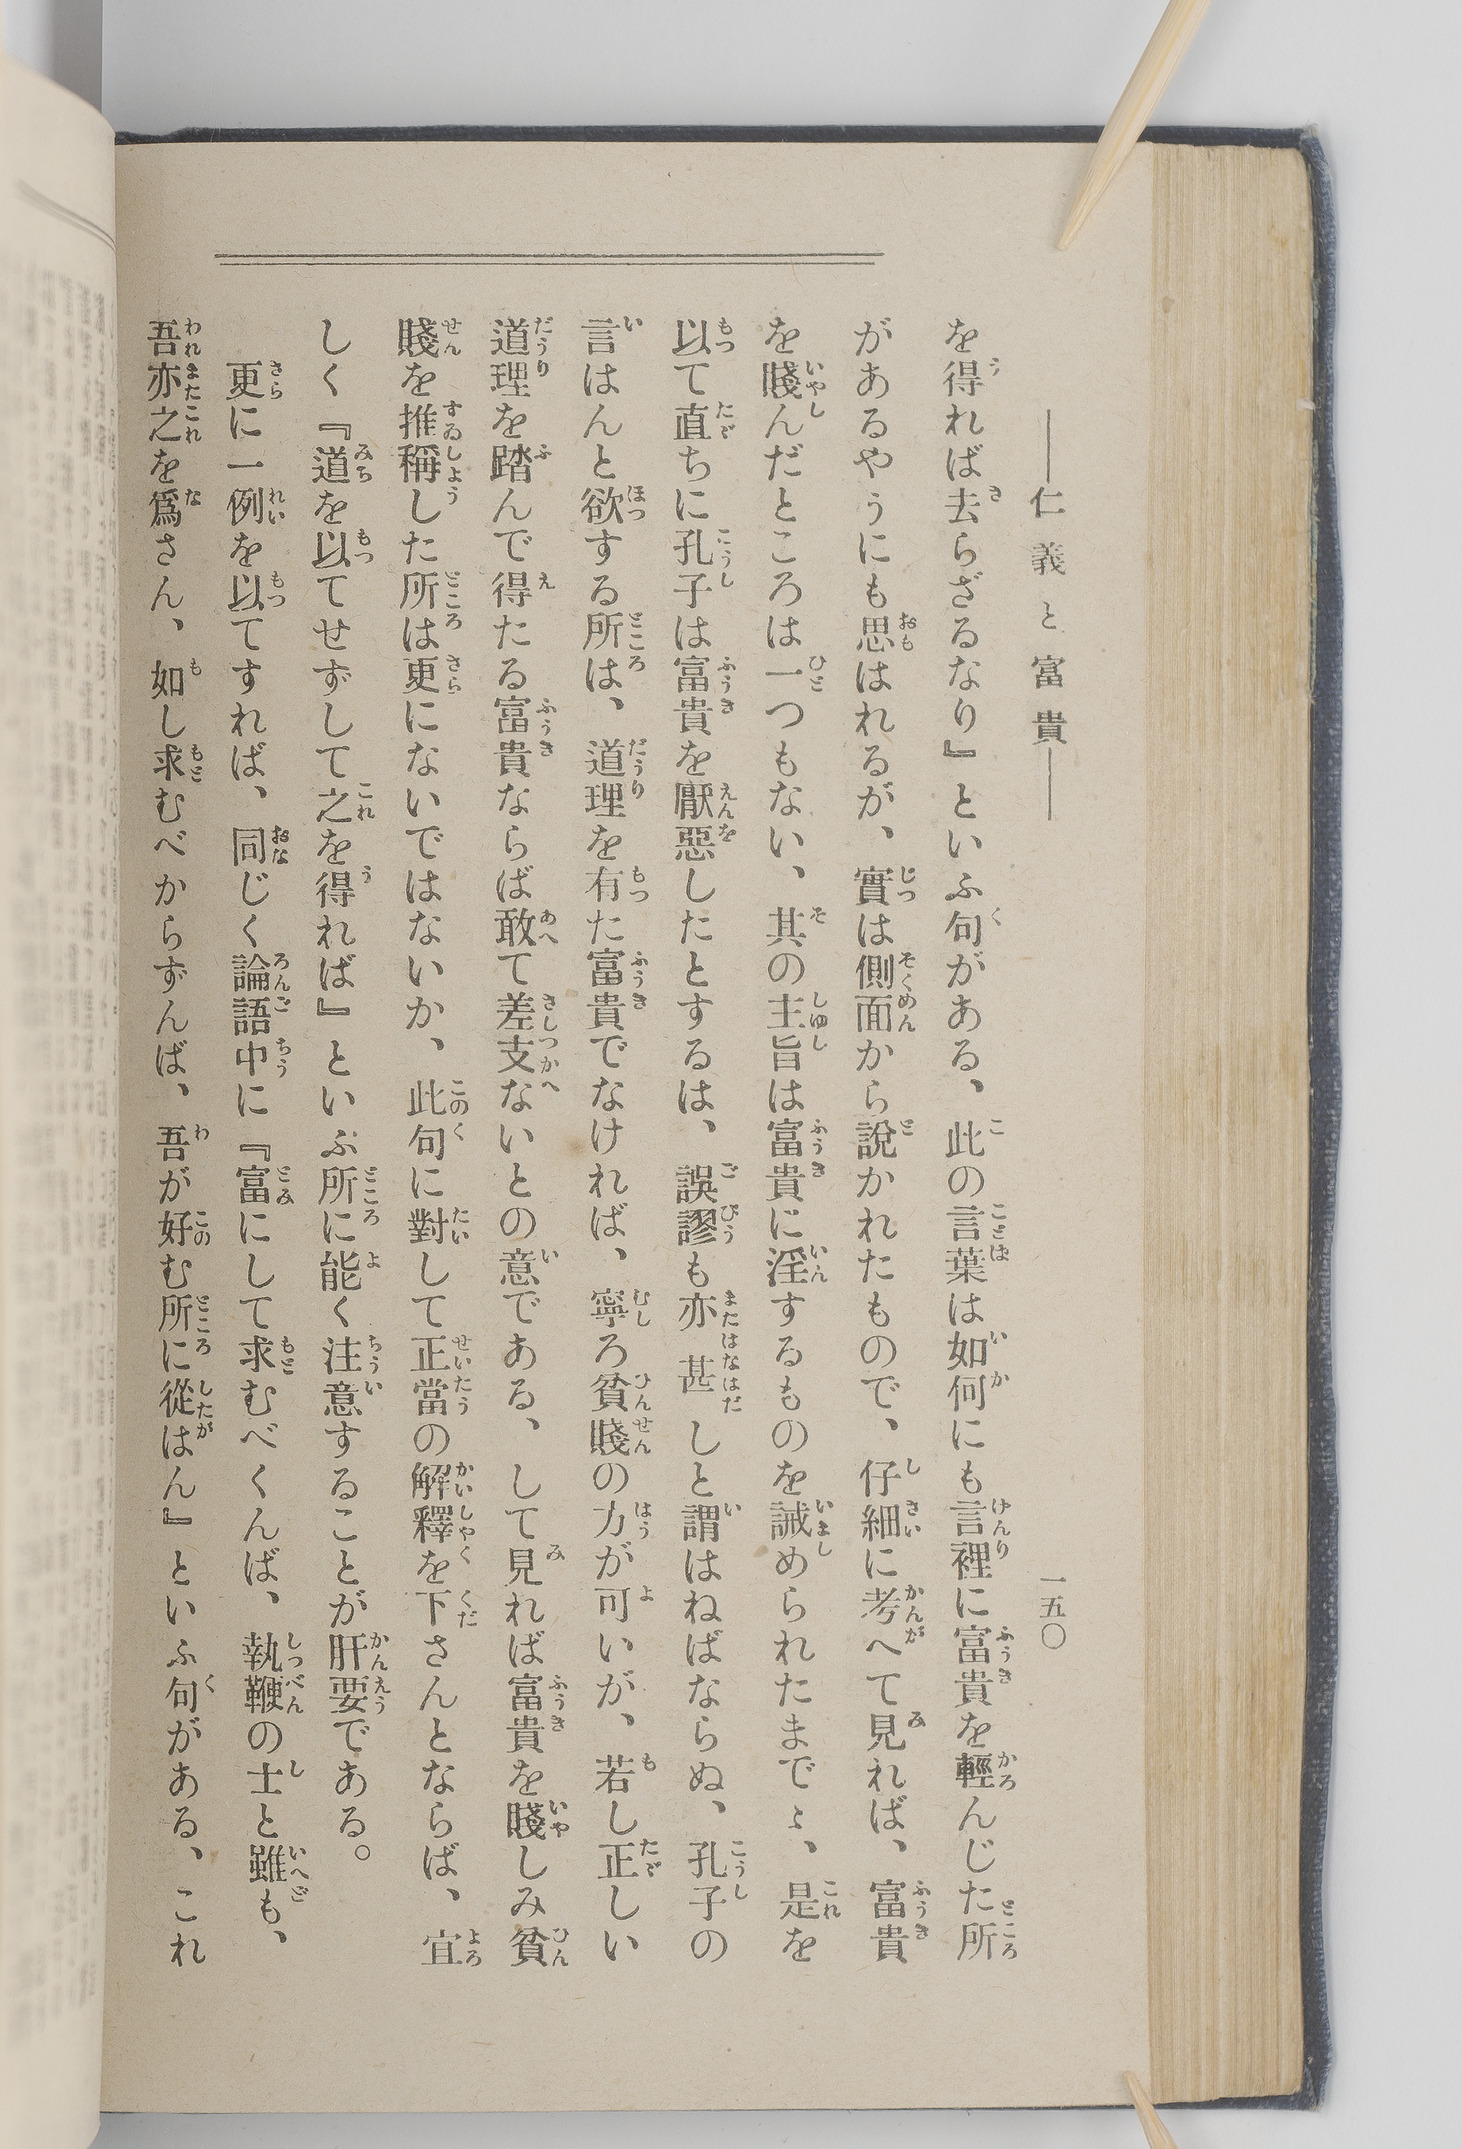 ―仁義と富貴―
一五〇
を得れば去らざるなり』といふ句がある、此の言葉は如何にも言裡に富貴を輕んじた所
があるやうにも思はれるが、實は側面から說かれたもので、仔細に考へて見れば、富貴
を賤んだところは一つもない、其の主旨は富貴に淫するものを誡められたまでゞ、是を
以て直ちに孔子は富貴を厭惡したとするは、誤謬も亦甚しと謂はねばならぬ、孔子の
言はんと欲する所は、道理を有た富貴でなければ、寧ろ貧賤の方が可いが、若し正しい
道理を踏んで得たる富貴ならば敢て差支ないとの意である、して見れば富貴を賤しみ貧
賤を推稱した所は更にないではないか、此句に對して正當の解釋を下さんとならば、宜
しく『道を以てせずして之を得れば』といふ所に能く注意することが肝要である。
更に一例を以てすれば、同じく論語中に『富にして求むべくんば、執鞭の士と雖も、
吾亦之を爲さん、如し求むべからずんば、吾が好む所に從はん』といふ句がある、これ